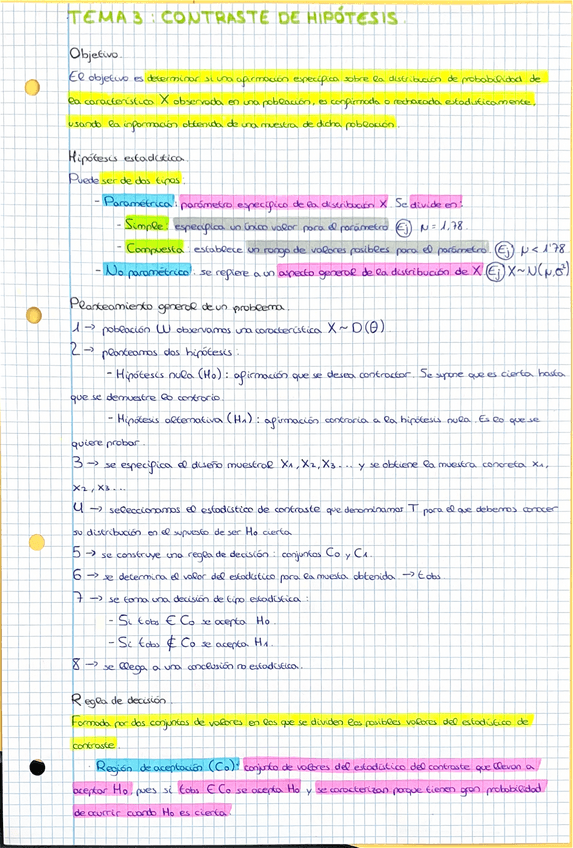 TEMA 3 : CONTRASTE DE HIPÓTESIS
Objetivo.
El objetivo es determinar si una afirmación específica sobre la distribución de probabilidad de
la característica X observada en una población, es confirmada o rechazada estadísticamente,
usando la información obtenida de una muestra de dicha población.
Hipótesis estadística
Puede ser de dos tipos:
- Paramétrica: parámetro específico de la distribución X. Se divide en:
- Simple: especifica un único valor para el parámetro. Ej μ = 1,78.
- Compuesta: establece un rango de valores posibles para el parámetro. Ej μ < 1'78
- No paramétrica: se refiere a un aspecto general de la distribución de X Ej X~N(μ,σ²)
Planteamiento general de un problema.
1 → población W observamos una característica X ~ D(θ)
2 → planteamos dos hipótesis:
- Hipótesis nula (H0): afirmación que se desea contractar. Se supone que es cierta hasta
que se demuestre lo contrario.
- Hipótesis alternativa (H1): afirmación contraria a la hipótesis nula. Es lo que se
quiere probar.
3 → se especifica el diseño muestral X1, X2, X3... y se obtiene la muestra concreta x1,
x2, x3...
4 → seleccionamos el estadístico de contraste que denominamos T para el que debemos conocer
su distribución en el supuesto de ser H0 cierta
5 → se construye una regla de decisión: conjuntos C0 y C1.
6 → se determina el valor del estadístico para la muestra obtenida → tobs
7 → se toma una decisión de tipo estadística:
- Si tobs ∈ C0 se acepta H0.
- Si tobs ∉ C0 se acepta H1.
8 → se llega a una conclusión no estadística.
Regla de decisión.
Formada por dos conjuntos de valores en los que se dividen los posibles valores del estadístico de
contraste.
· Región de aceptación (C0): conjunto de valores del estadístico del contraste que llevan a
aceptar H0, pues si tobs ∈ C0 se acepta H0 y se caracterizan porque tienen gran probabilidad
de ocurrir cuando H0 es cierta.